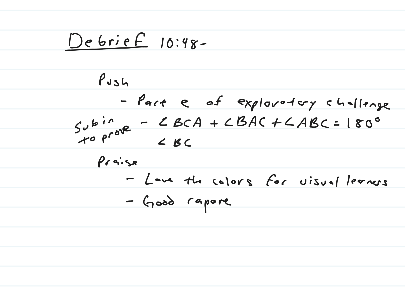 Debrief 10:48-
Push
- Part e of exploratory challenge
Sub in to prove - ∠BCA + ∠BAC + ∠ABC = 180°
∠BC
Praise
- Love th colors for visual learners
- Good rapore